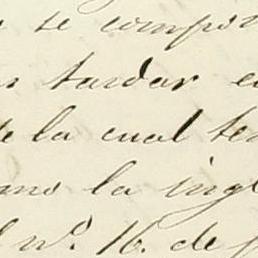 se compon
tardar e
de la cual te
la ingl
nº. 16. de